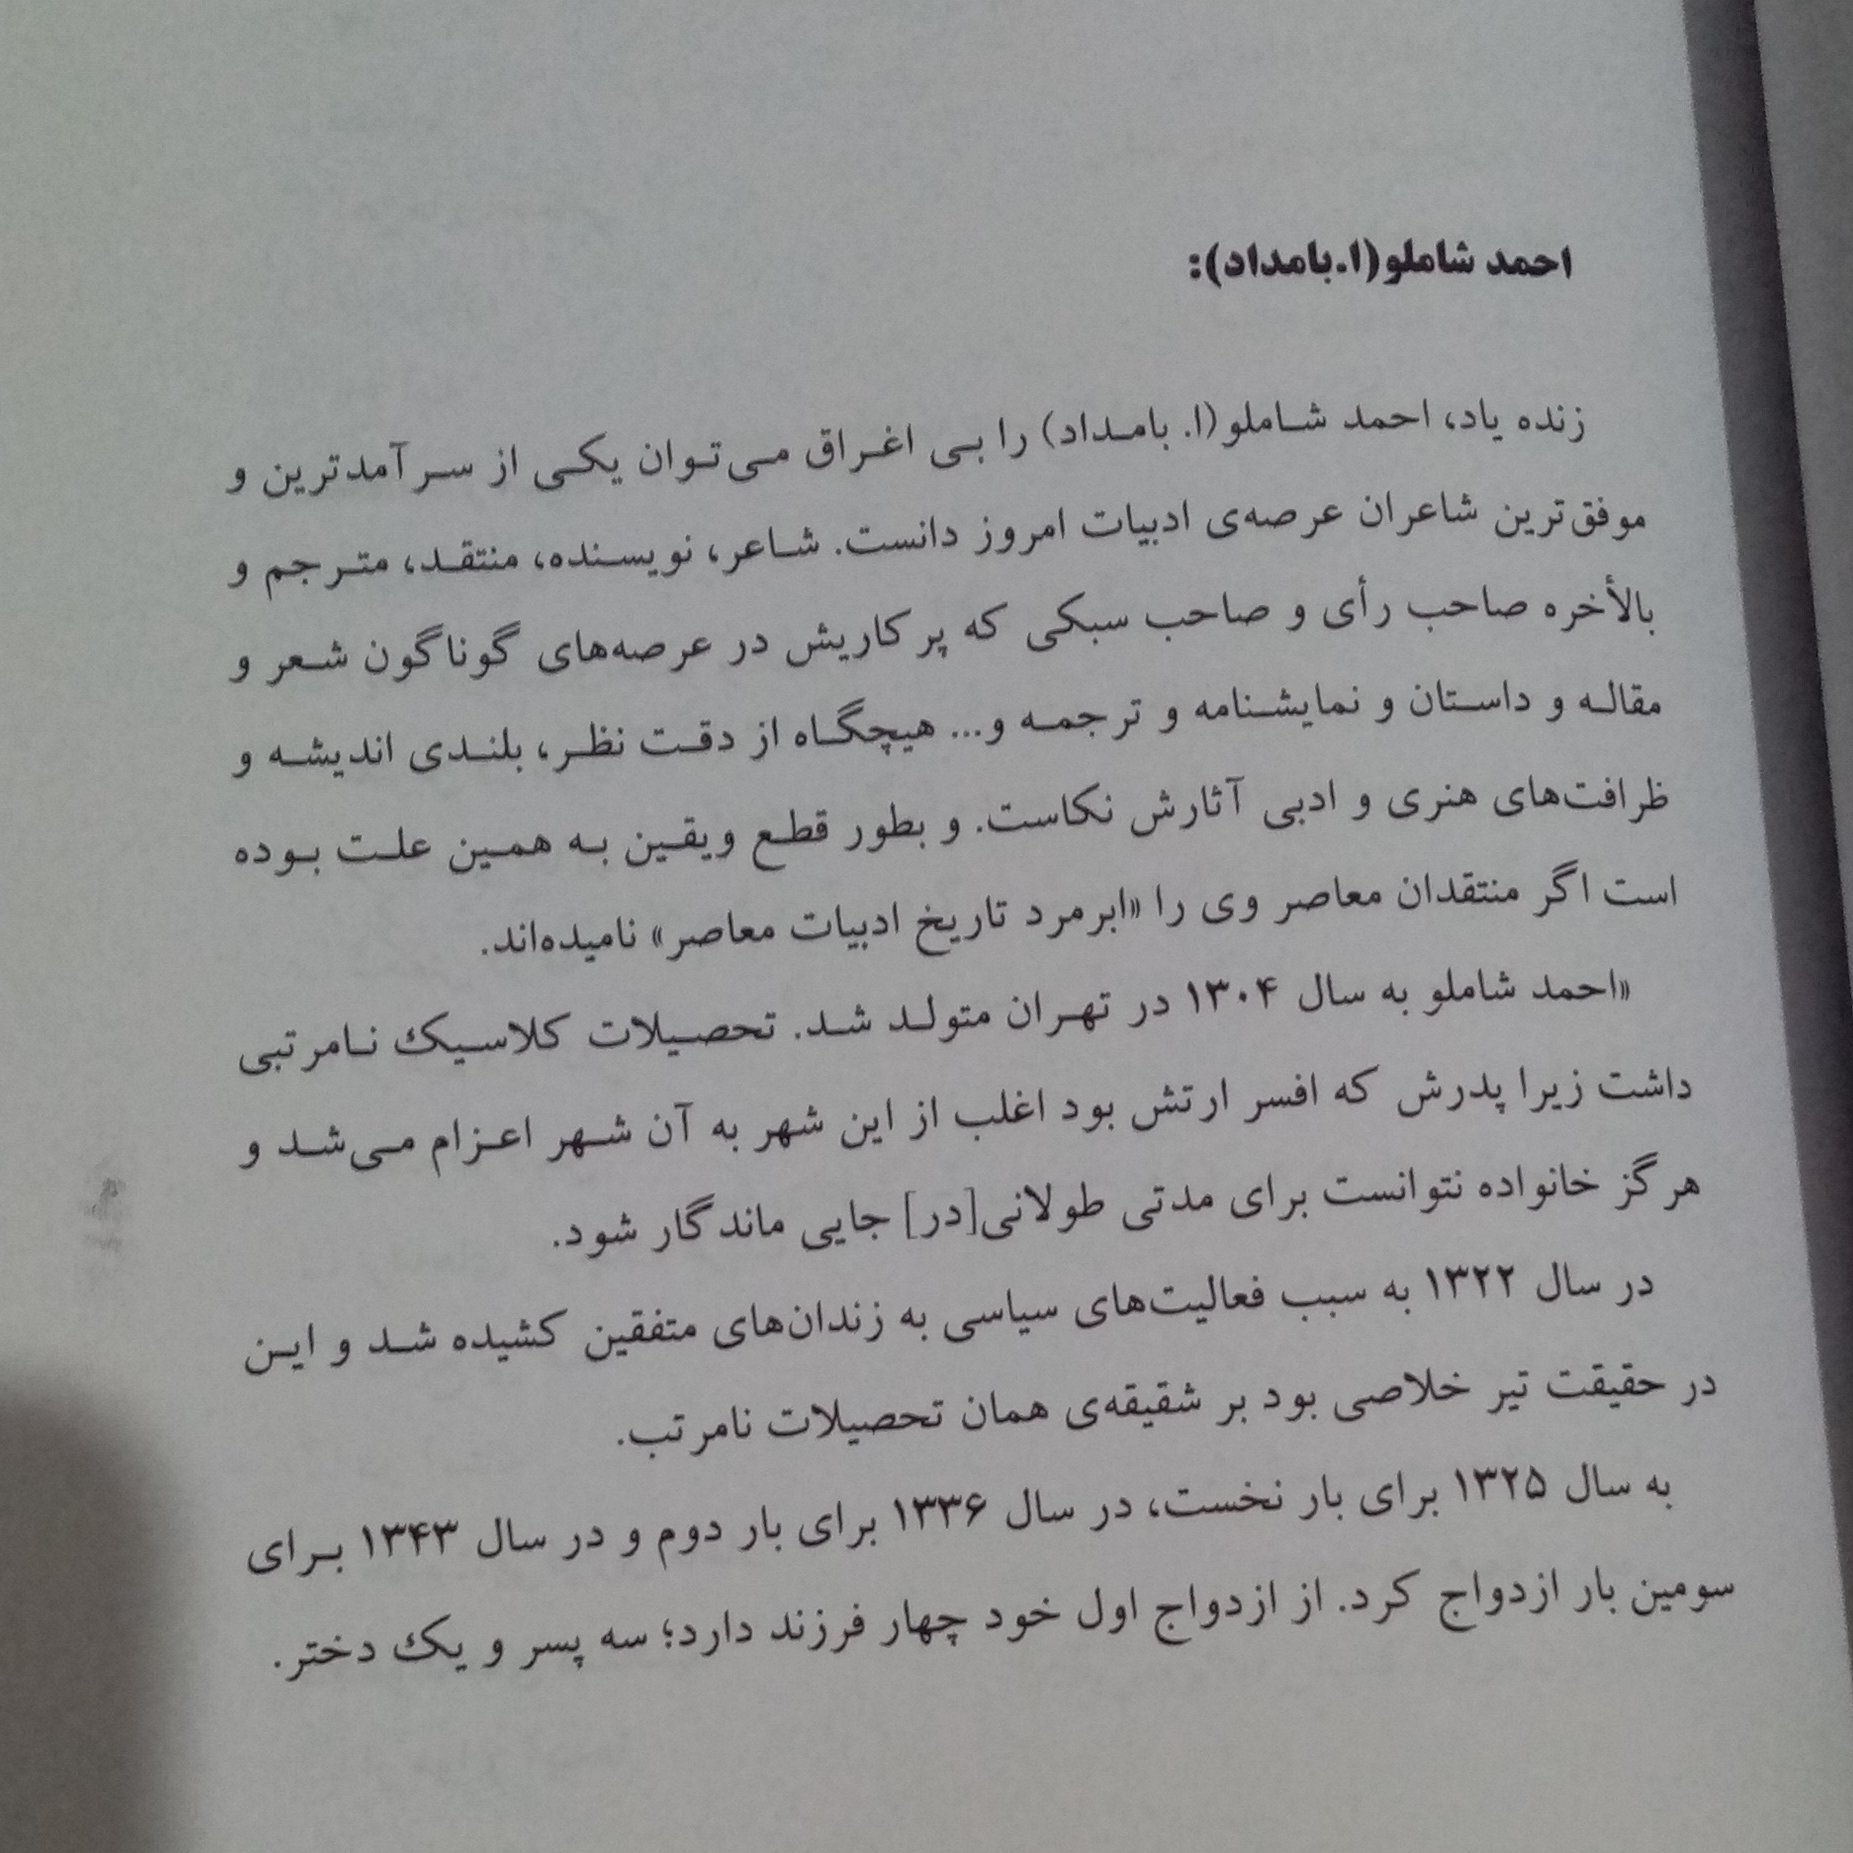 احمد شاملو(ا.بامداد):
زنده یاد، احمد شاملو(ا. بامداد) را بی اغراق می‌توان یکی از سرآمدترین و
موفق‌ترین شاعران عرصه‌ی ادبیات امروز دانست. شاعر، نویسنده، منتقد، مترجم و
بالأخره صاحب رأی و صاحب سبکی که پرکاریش در عرصه‌های گوناگون شعر و
مقاله و داستان و نمایشنامه و ترجمه و... هیچگاه از دقت نظر، بلندی اندیشه و
ظرافت‌های هنری و ادبی آثارش نکاست. و بطور قطع ویقین به همین علت بوده
است اگر منتقدان معاصر وی را «ابرمرد تاریخ ادبیات معاصر» نامیده‌اند.
«احمد شاملو به سال ۱۳۰۴ در تهران متولد شد. تحصیلات کلاسیک نامرتبی
داشت زیرا پدرش که افسر ارتش بود اغلب از این شهر به آن شهر اعزام می‌شد و
هرگز خانواده نتوانست برای مدتی طولانی[در] جایی ماندگار شود.
در سال ۱۳۲۲ به سبب فعالیت‌های سیاسی به زندان‌های متفقین کشیده شد و این
در حقیقت تیر خلاصی بود بر شقیقه‌ی همان تحصیلات نامرتب.
به سال ۱۳۲۵ برای بار نخست، در سال ۱۳۳۶ برای بار دوم و در سال ۱۳۴۳ برای
سومین بار ازدواج کرد. از ازدواج اول خود چهار فرزند دارد؛ سه پسر و یک دختر.